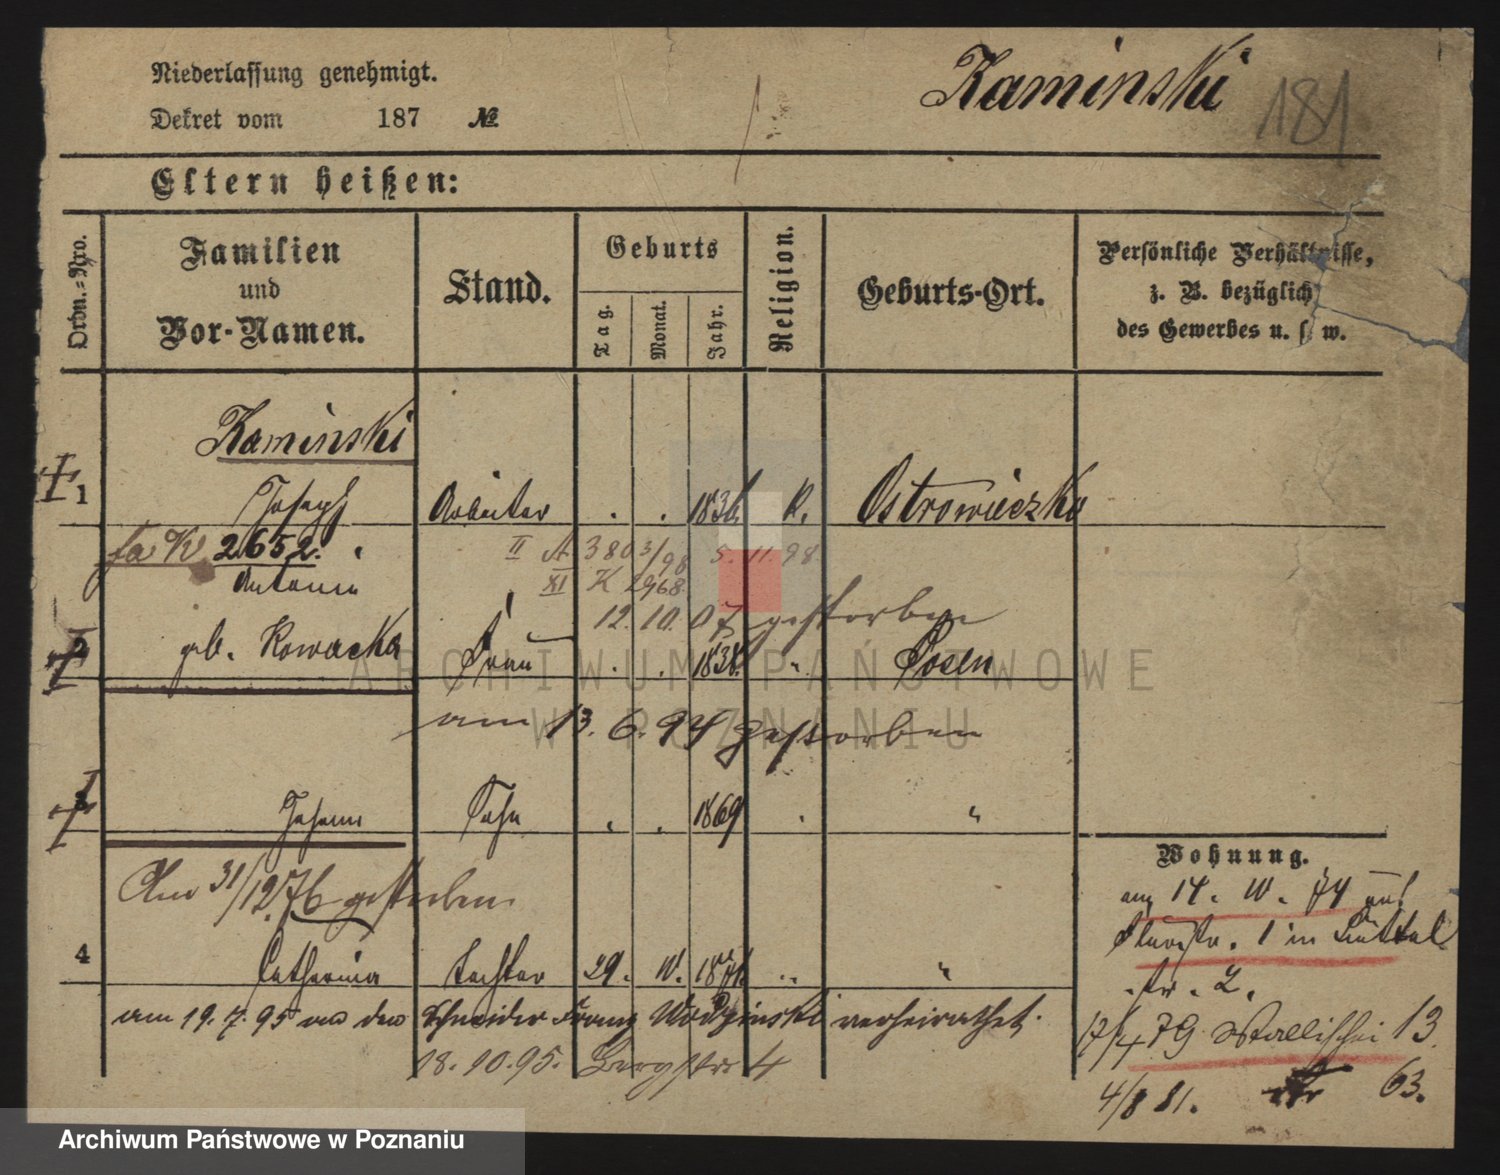 Niederlassung genehmigt.
Kaminski
181
Dekret vom 187 №
Eltern heißen:
Ordn.-Nro.
Familien
und
Vor-Namen.
Stand.
Geburts
Tag.
Monat.
Jahr.
Religion.
Geburts-Ort.
Persönliche Verhältnisse,
z. B. bezüglich
des Gewerbes u. s. w.
Kaminski
1 Joseph Arbeiter . . 1836. K. Ostrowieczko
fa K 2652. II A 380 3/98 5. 11. 98
XI K 2968
Antonie
12. 10. 07 gestorben
2 geb. Kowacka Frau . . 1838. " Posen
am 13. 6. 94 gestorben
3 Johann Sohn . . 1869 . "
Am 31/12 76 gestorben.
4 Catharina Tochter 29. IV. 1871. " "
am 19. 7. 95 an den Schneider Franz verheirathet.
18. 10. 95. Bergstr 4
Wohnung.
14. IV. 74
1 in
17/4 79 Wallischei 13.
4/8 81. 63.
ARCHIWUM PAŃSTWOWE
W POZNANIU
Archiwum Państwowe w Poznaniu